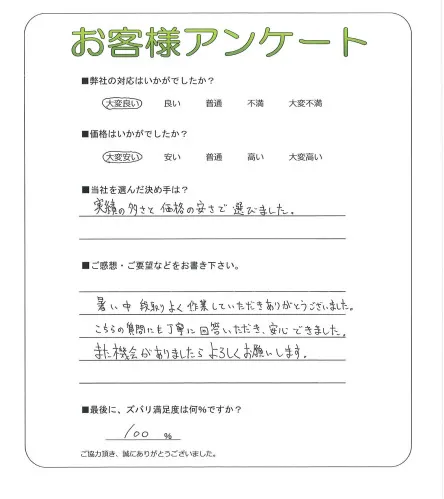 お客様アンケート
■弊社の対応はいかがでしたか?
大変良い 良い 普通 不満 大変不満
■価格はいかがでしたか?
大変安い 安い 普通 高い 大変高い
■当社を選んだ決め手は?
実績の多さと価格の安さで選びました。
■ご感想・ご要望などをお書き下さい。
暑い中 段取りよく作業していただきありがとうございました。
こちらの質問にも丁寧に回答いただき、安心できました。
また機会がありましたらよろしくお願いします。
■最後に、ズバリ満足度は何%ですか?
100 %
ご協力頂き、誠にありがとうございました。